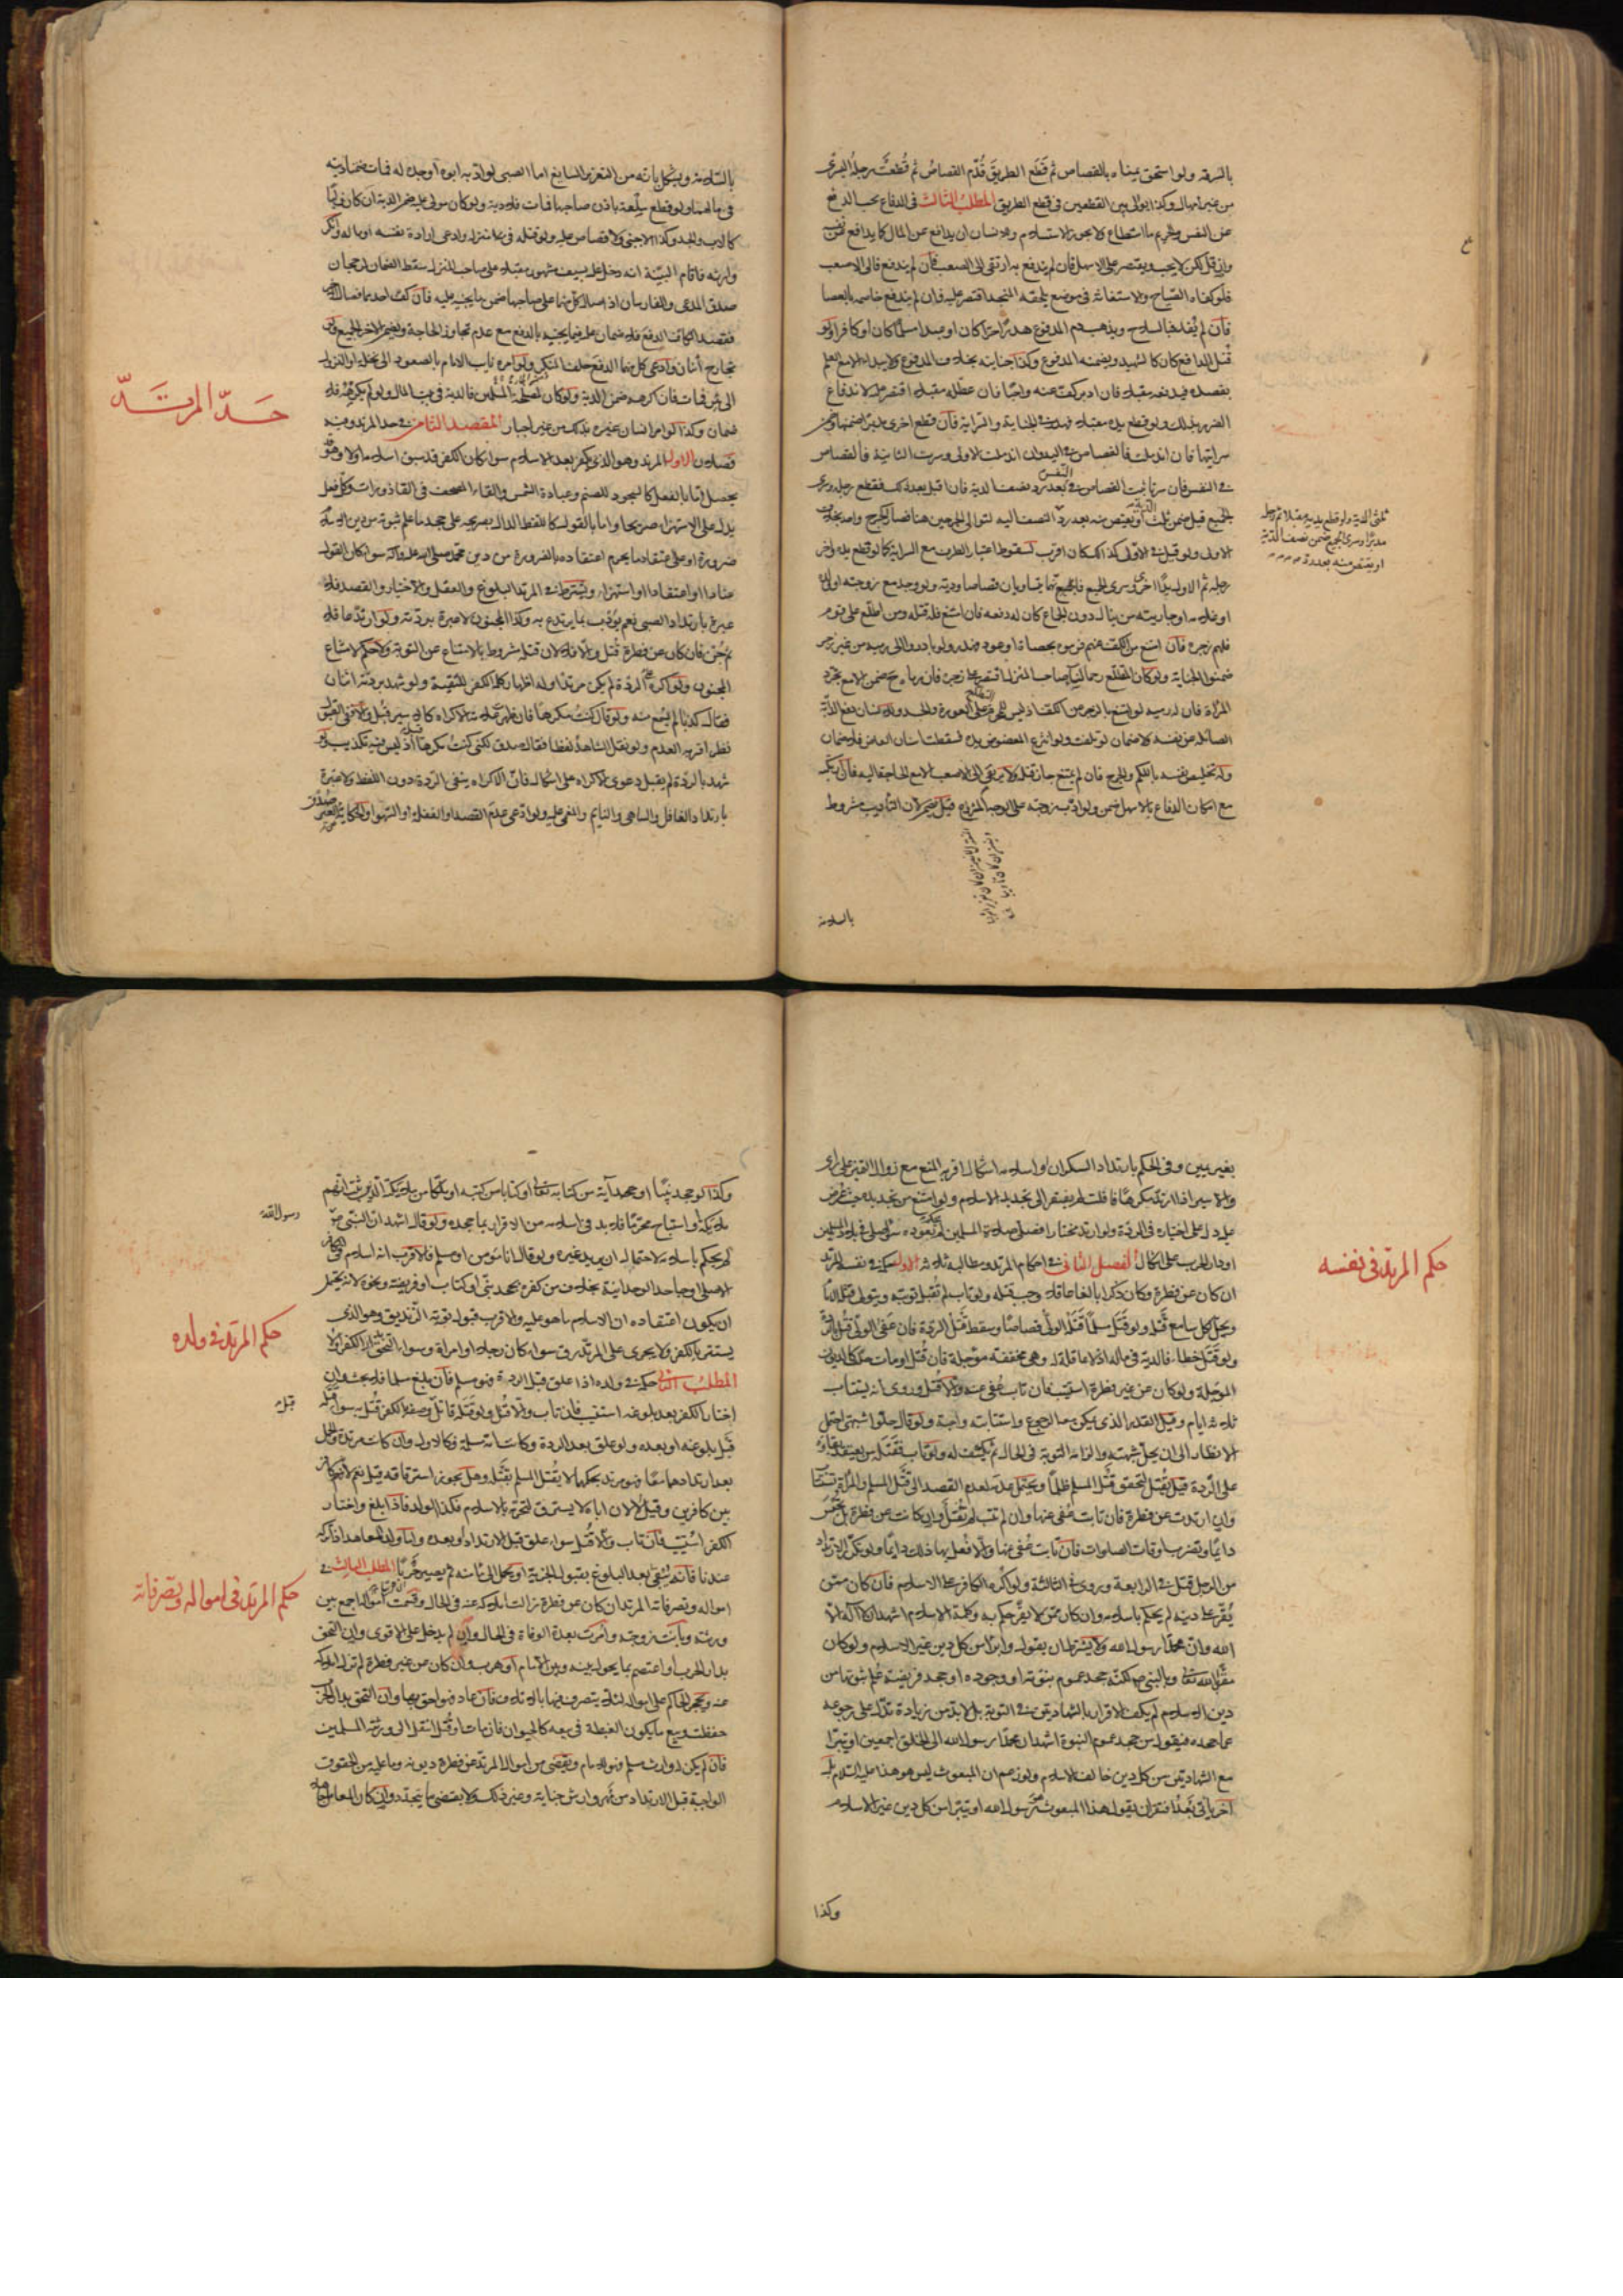 بالسرقة ولو استحق يمناه بالقصاص ثم قطع الطريق قُدّم القصاص ثم قُطعت رجله اليسرى
من غير امهال وكذا يوالى بين القطعين فى قطع الطريق المطلب الثالث فى الدفاع يجب الدفع
عن النفس والحريم ما استطاع ولا يجوز الاستسلام وللانسان ان يدافع عن المال كما يدافع عن نفسه
وان قل لكن لا يجب ويقتصر على الاسهل فان لم يندفع به ارتقى الى الصعب فان لم يندفع فالى الاصعب
فلو كفاه الصياح والاستغاثة فى موضع يلحقه المنجد اقتصر عليه فان لم يندفع خاصمه بالعصا
فان لم يُفد فبالسلاح ويذهب دم المدفوع هدرًا حرّا كان او عبدا مسلمًا كان او كافرا ولو
قُتل الدافع كان كالشهيد ويضمنه المدفوع وكذا جنايته بخلاف المدفوع ولا يبدأه الا مع العلم
بقصده فيدفعه مقبلا فان ادبر كفّ عنه واجبًا فان عطّله مقبلا اقتصر عليه لاندفاع
الضرر بذلك ولو قطع يده مقبلا فهدر فى الجناية والسراية فان قطع اخرى مدبرا ضمنها وضمن
سرايتها فان اندملت فالقصاص فى اليد ولو اندملت الاولى وسرت الثانية فالقصاص
فى النفس فان سرتا ثبت القصاص فى النفس بعد رد نصف الدية فان اقبل بعد ذلك فقطع رجله وسرى
الجميع قيل ضمن ثلث الدية او يقتص منه بعد رد
الاولى ولو قيل فى الاولى كذلك كان اقرب لسقوط اعتبار الطرف مع السراية كما لو قطع يده واخر
رجله ثم الاول يدًا اخرى وسرى الجميع فانهما يتساويان قصاصا ودية ولو وجد مع زوجته او ولده
او غلامه او جاريته من ينال دون الجماع كان له دفعه فان امتنع فله قتله ومن اطلع على قوم
فلهم زجره فان امتنع من الكف عنهم فرموه بحصاة او عود فهدر ولو بادروا الى رميه من غير زجر
ضمنوا الجناية ولو كان المطلع رحما لنساء صاحب المنزل اقتصر على زجره فان رماه ح ضمن الا مع تجرد
المرأة فان له رميه لو امتنع بالزجر عن الكف اذ ليس للمحرم التطلع على العورة والجسد وللانسان دفع الدابة
الصائلة عن نفسه ولا ضمان لو تلفت ولو انتزع المعضوض يده فسقطت اسنان العاض فلا ضمان
وله تخليص نفسه باللكم والجرح فان لم يمتنع جاز قتله ولا يرتقى الى الاصعب الا مع الحاجة اليه فان ارتكبه
مع امكان الدفاع بالاسهل ضمن ولو ادّب زوجته على الوجه المشروع قيل يضمن لان التأديب مشروط
ثلثى الدية ولو قطع يديه مقبلا ثم رجله
مدبرًا وسرى الجميع ضمن نصف الدية
او يقتص منه بعد رده
بالسلامة
بالسلامة ويشكل بانه من التعزير السايغ اما الصبى لو ادّبه ابوه او جده له فمات ضمنا ديته
فى مالهما ولو قطع سلعة باذن صاحبها فمات فلا دية ولو كان مولى عليه ضمن الدية ان كان وليّا
كالاب والجد وكذا الاجنبى ولا قصاص عليه ولو قتله فى منزله وادعى ارادة نفسه او ماله وانكر
وارثه فاقام البينة انه دخل عليه بسيف مشهور مقبلا على صاحب المنزل سقط الضمان لرجحان
صدق المدعى والفارسان اذا صال كل منهما على صاحبها ضمن ما يجنيه عليه فان كفّ احدهما فصال الاخر
فقصد الكاف الدفع فلا ضمان عليه فيما يجنيه بالدفع مع عدم تجاوز الحاجة ويضمن الاخر الجميع ولو
تجارح اثنان وادعى كل منهما الدفع حلف المنكر ولو امره نايب الامام بالصعود الى نخلة او النزول
الى بئر فمات فان اكرهه ضمن الدية ولو كان لمصلحة المسلمين فالدية فى بيت المال ولو لم يكرهه فلا
ضمان وكذا لو امر انسان غيره بذلك من غير اجبار المقصد الثامن فى حد المرتد وفيه
فصلان الاول المرتد وهو الذى يكفر بعد الاسلام سواء كان الكفر قد سبق اسلامه او لا وهو
يحصل اما بالفعل كالسجود للصنم وعبادة الشمس والقاء المصحف فى القاذورات وكل فعل
يدل على الاستهزاء صريحا واما بالقول كاللفظ الدال بصريحه على جحد ما علم ثبوته من دين الاسلام
ضرورة او على اعتقاد ما يحرم اعتقاده بالضرورة من دين محمد صلى الله عليه وآله سواء كان القول
عنادا او اعتقادا او استهزاء ويشترط فى المرتد البلوغ والعقل والاختيار والقصد فلا
عبرة بارتداد الصبى نعم يؤدب بما يرتدع به وكذا المجنون لا عبرة بردّته ولو ارتد عاقلا
ثم جُنّ فان كان عن فطرة قُتل والا فلا لان قتله مشروط بالامتناع عن التوبة ولا حكم لامتناع
المجنون ولو اكره على الردة لم يكن مرتدًا وله اظهار كلمة الكفر للتقية ولو شهد بردته اثنان
فقال كذبا لم يُسمع منه ولو قال كنت مكرها فان ظهر علامة الاكراه كالاسير قُبل والا ففى القبول
نظر اقربه العدم ولو نقل الشاهد لفظا فقال صدق لكنى كنت مكرها قُبل اذ ليس فيه تكذيب ولو
شهد بالردة لم يقبل دعوى الاكراه على اشكال فان الاكراه ينفى الردة دون اللفظ ولا عبرة
بارتداد الغافل والساهى والنايم والمغمى عليه ولو ادعى عدم القصد او الغفلة او السهو او الحكاية عن الغير صُدّق
حَدّ المرتَدّ
بغير يمين وفى الحكم بارتداد السكران او اسلامه اشكال اقربه المنع مع زوال التمييز على راى
والاسير اذا ارتد مكرهًا فافلت لم يفتقر الى تجديد الاسلام ولو امتنع من تجديده حيث عرض
عليه دل على اختياره فى الردة ولو ارتد مختارا فصلى صلاة المسلمين لم يحكم بعوده سواء صلى فى بلاد المسلمين
او دار الحرب على اشكال الفصل الثانى فى احكام المرتد ومطالبه ثلاثة الاول حكمه فى نفسه المرتد
ان كان عن فطرة وكان ذكرا بالغا عاقلا وجب قتله ولو تاب لم تُقبل توبته ويتولى قتله الامام
ويحل لكل سامع قَتله ولو قتل مسلمًا قَتَله الولىّ قصاصًا وسقط قَتل الردة فان عفى الولى قُتل بالردة
ولو قَتل خطأ فالدية فى ماله اذ لا عاقلة له وهى مخففة مؤجلة فان قُتل او مات حلت كالديون
المؤجلة ولو كان عن غير فطرة استتيب فان تاب عُفى عنه والا قُتل وروى انه يستتاب
ثلاثة ايام وقيل القدر الذى يمكن معه الرجوع واستتابته واجبة ولو قال حلوا شبهتى احتمل
الانظار الى ان يحل شبهته والزامه التوبة فى الحال ثم يكشف له ولو تاب فقتله من يعتقد بقاؤه
على الردة قيل يُقتل لتحقق قَتل المسلم ظلمًا ويحتمل عدمه لعدم القصد الى قَتل المسلم والمرأة تستتاب
وان ارتدت عن فطرة فان تابت عُفى عنها وان لم تتب لم تُقتل وان كانت عن فطرة بل تحبس
دائمًا وتضرب اوقات الصلوات فان تابت عُفى عنها والا فُعل بها ذلك دايمًا ولو تكرر الارتداد
من الرجل قتل فى الرابعة وروى فى الثالثة ولو اُكره الكافر على الاسلام فان كان ممن
يُقرّ على دينه لم يحكم باسلامه وان كان ممن لا يقرّ حكم به وكلمة الاسلام اشهد ان لا اله الا
الله وان محمدًا رسول الله ولا يشترط ان يقول وابرأ من كل دين غير الاسلام ولو كان
مقرًّا بالله تعالى وبالنبى ص لكنه جحد عموم نبوته او وجوده او جحد فريضة عُلم ثبوتها من
دين الاسلام لم يكف الاقرار بالشهادتين فى التوبة بل لا بد من زيادة تدل على رجوعه
عما جحده فيقول من جحد عموم النبوة اشهد ان محمدا رسول الله الى الخلق اجمعين او يتبرأ
مع الشهادتين من كل دين خالف الاسلام ولو زعم ان المبعوث ليس هو هذا عليه السلام بل
آخر يأتى بَعْدُ افتقر ان يقول هذا المبعوث هو رسول الله او يتبرأ من كل دين غير الاسلام
حكم المرتد فى نفسه
وكذا
وكذا لو جحد نبيًّا او جحد آية من كتابه تعالى او كتابا من كتبه او ملكًا من ملائكته الذين ثبت انهم
ملائكة او استباح محرّمًا فلا بد فى اسلامه من الاقرار بما جحده ولو قال اشهد ان النبى ص
لم يحكم باسلامه لاحتمال ان يريد غيره ولو قال انا مؤمن او مسلم فالاقرب انه اسلام فى الكافر
الاصلى او جاحد الوحدانية بخلاف من كفره بجحد نبى او كتاب او فريضة ونحوه لانه يحتمل
ان يكون اعتقاده ان الاسلام ما هو عليه والاقرب قبول توبة الزنديق وهو الذى
يستتر بالكفر ولا يجرى على المرتد رق سواء كان رجلا او امرأة وسواء التحق بدار الكفر او لا
المطلب الثانى حكمه فى ولده اذا علق قبل الردة فهو مسلم فان بلغ مسلما فلا بحث وان
اختار الكفر بعد بلوغه استتيب فان تاب والا قُتل ولو قَتله قاتل قبل وصفه الكفر قُتل به سواء قتله
قَبل بلوغه او بعده ولو علق بعد الردة وكانت امه مسلمة فكالاول وان كانت مرتدة والحمل
بعد ارتدادهما معًا فهو مرتد بحكمهما لا يُقتل المسلم بقتله وهل يجوز استرقاقه قيل نعم لانه كافر
بين كافرين وقيل لا لان اباه لا يسترق لتحرمه بالاسلام فكذا الولد فاذا بلغ واختار
الكفر استُتيب فان تاب والا قُتل سواء علق قبل الارتداد او بعده واما ولد المعاهد اذا تركه
عندنا فانه يُبقى بعد البلوغ بقبول الجزية او يحمل الى مأمنه ثم يصير حربًا المطلب الثالث فى
امواله وتصرفاته المرتد ان كان عن فطرة زالت املاكه عنه فى الحال وقسمت امواله اجمع بين
ورثته وبانت زوجته وامرت بعدة الوفاة فى الحال وان لم يدخل على الاقوى وان التحق
بدار الحرب او اعتصم بما يحول بينه وبين الامام او هرب وان كان عن غير فطرة لم تزل املاكه
عنه ويحجر الحاكم على امواله لئلا يتصرف فيها بالاتلاف فان عاد فهو احق بها وان التحق بدار الحرب
حفظت وبيع ما يكون الغبطة فى بيعه كالحيوان فان مات او قُتل انتقل الى ورثته المسلمين
فان لم يكن له وارث مسلم فهو للامام وتقضى من اموال المرتد عن فطرة ديونه وما عليه من الحقوق
الواجبة قبل الارتداد من مهر وارش جناية وغير ذلك ولا يقضى ما يتجدد وان كان المعامل جاهلا
رسول الله
قبل
حكم المرتد فى ولده
حكم المرتد فى امواله وتصرفاته